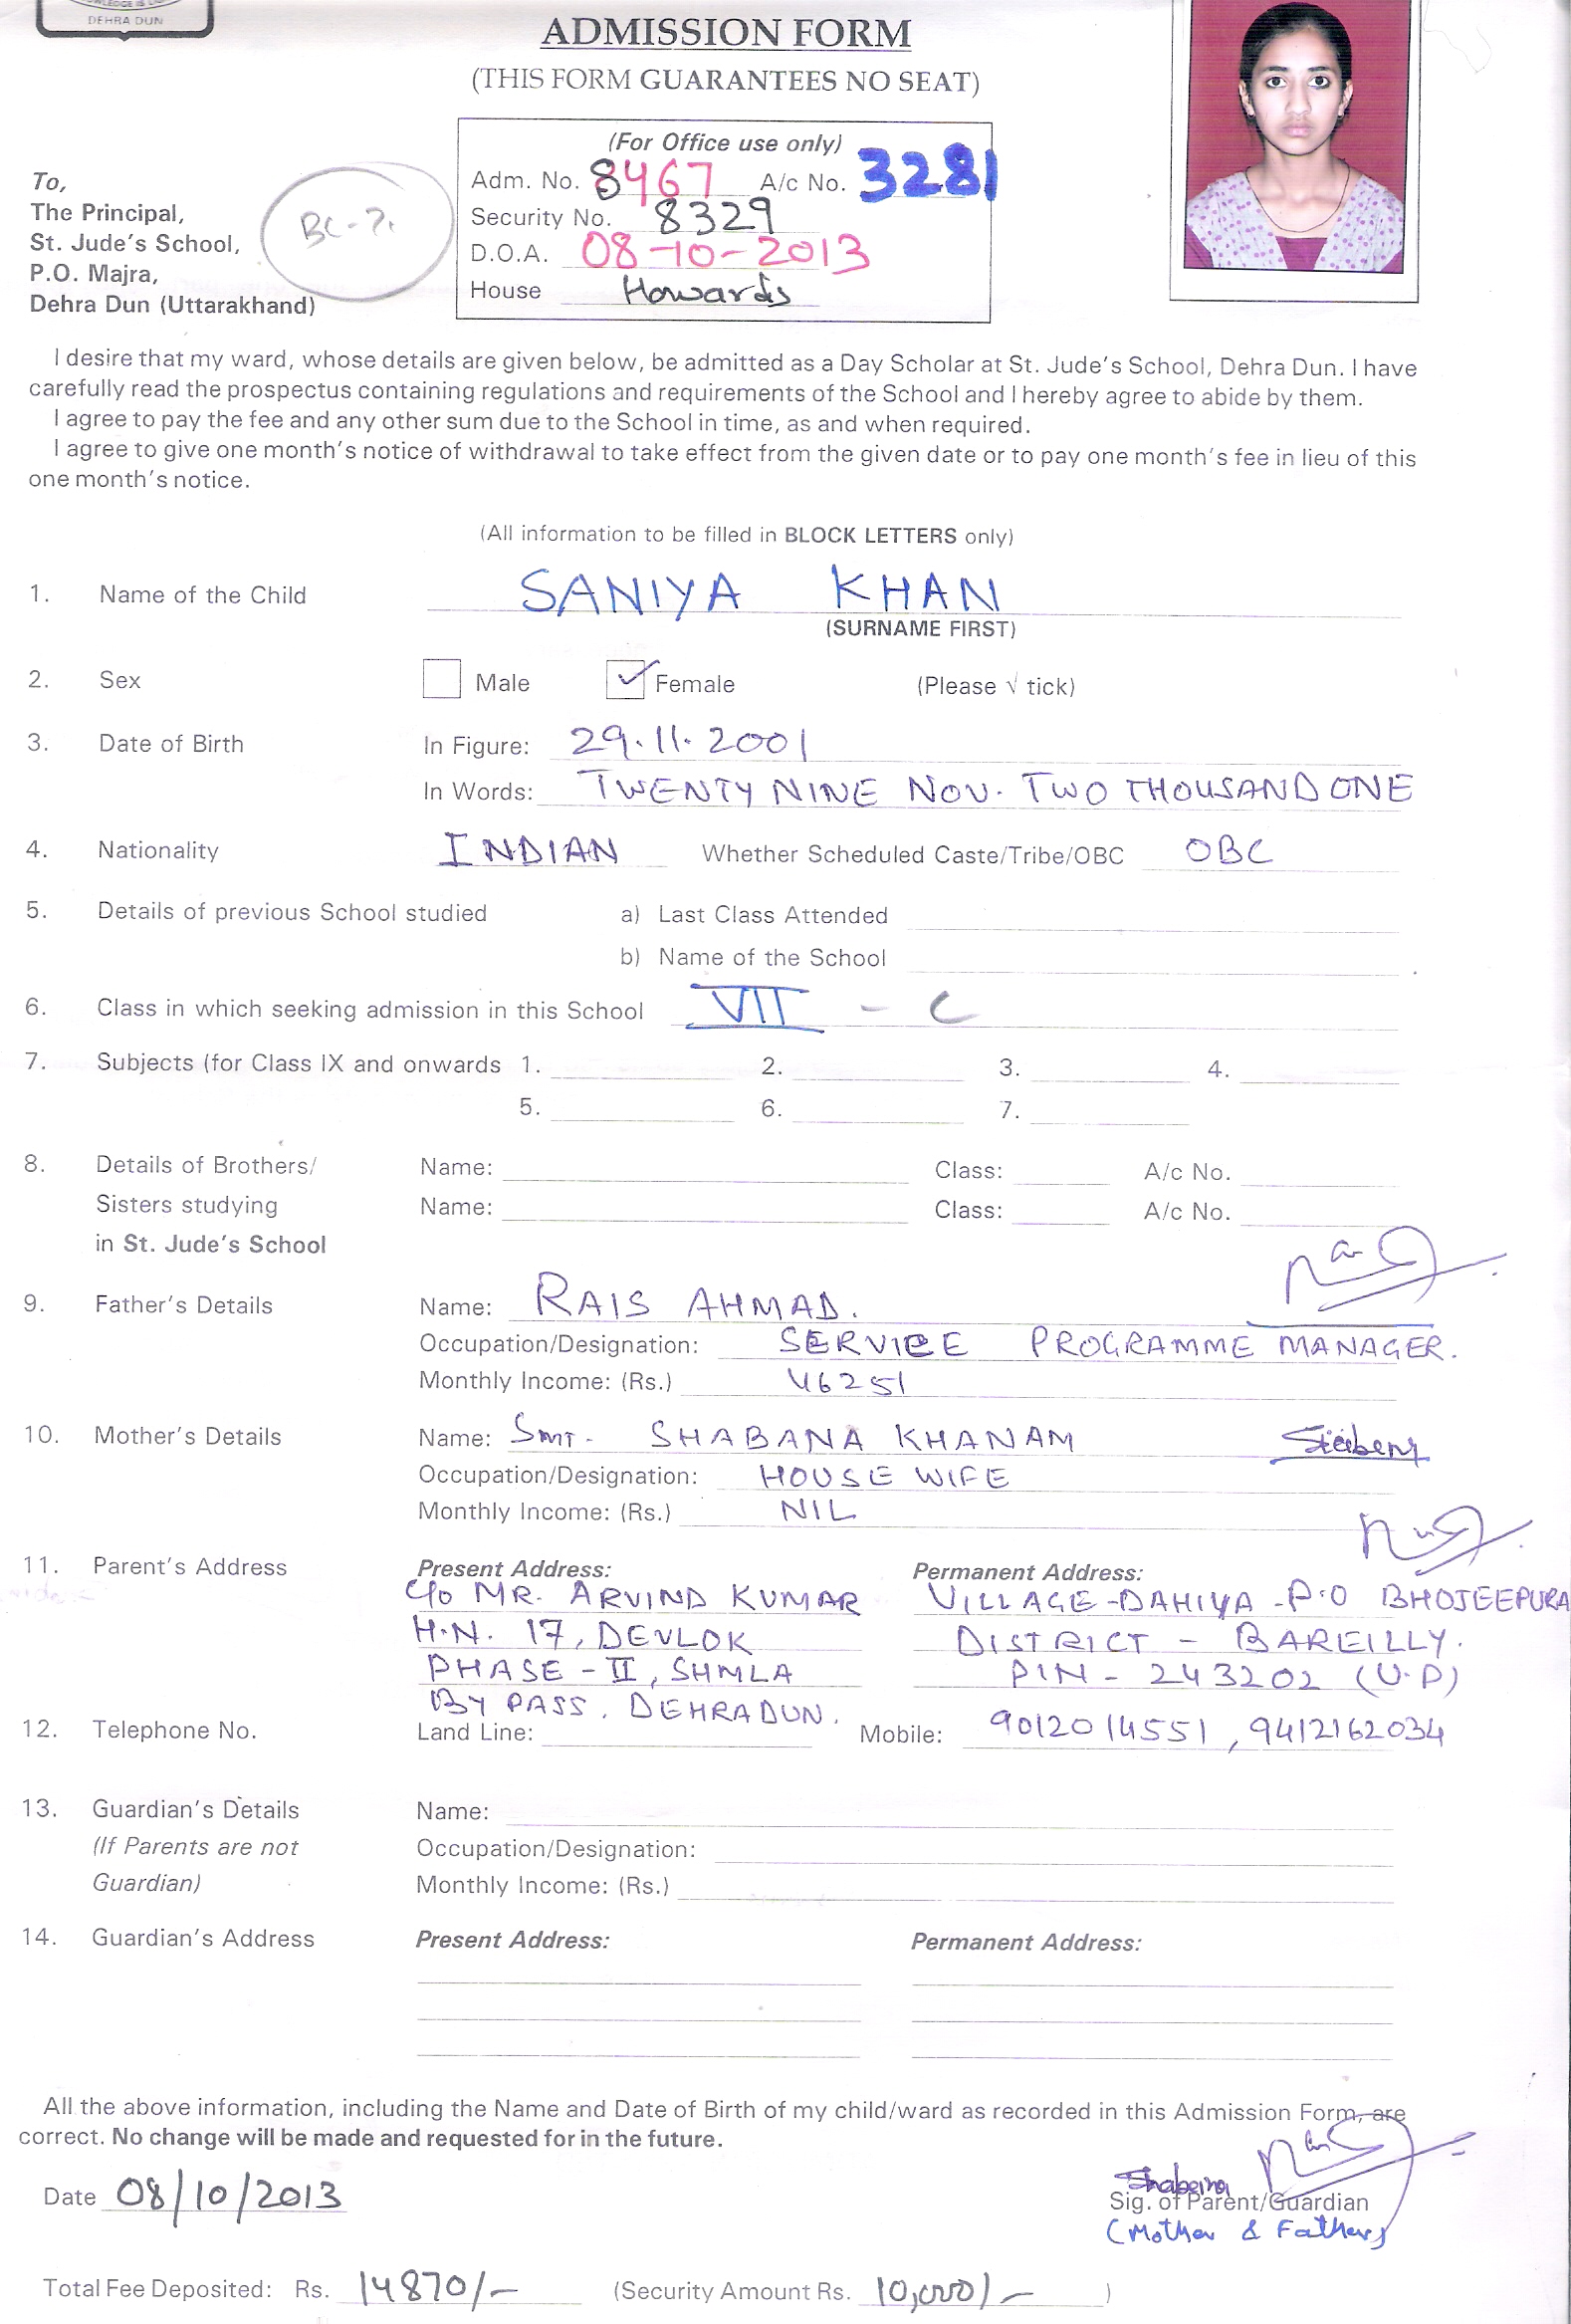 KNOWLEDGE IS
DEHRA DUN
ADMISSION FORM
(THIS FORM GUARANTEES NO SEAT)
(For Office use only)
Adm. No. 8467 A/c No. 3281
Security No. 8329
D.O.A. 08-10-2013
House Howards
To,
The Principal,
St. Jude's School,
P.O. Majra,
Dehra Dun (Uttarakhand)
I desire that my ward, whose details are given below, be admitted as a Day Scholar at St. Jude's School, Dehra Dun. I have
carefully read the prospectus containing regulations and requirements of the School and I hereby agree to abide by them.
I agree to pay the fee and any other sum due to the School in time, as and when required.
I agree to give one month's notice of withdrawal to take effect from the given date or to pay one month's fee in lieu of this
one month's notice.
(All information to be filled in BLOCK LETTERS only)
1. Name of the Child SANIYA KHAN
(SURNAME FIRST)
2. Sex Male Female (Please √ tick)
3. Date of Birth In Figure: 29.11.2001
In Words: TWENTY NINE NOV. TWO THOUSAND ONE
4. Nationality INDIAN Whether Scheduled Caste/Tribe/OBC OBC
5. Details of previous School studied a) Last Class Attended
b) Name of the School
6. Class in which seeking admission in this School VII - C
7. Subjects (for Class IX and onwards 1. 2. 3. 4.
5. 6. 7.
8. Details of Brothers/ Name: Class: A/c No.
Sisters studying Name: Class: A/c No.
in St. Jude's School
9. Father's Details Name: RAIS AHMAD.
Occupation/Designation: SERVICE PROGRAMME MANAGER.
Monthly Income: (Rs.) 46251
10. Mother's Details Name: Smt. SHABANA KHANAM
Occupation/Designation: HOUSE WIFE
Monthly Income: (Rs.) NIL
11. Parent's Address Present Address: Permanent Address:
C/o MR. ARVIND KUMAR VILLAGE-DAHIYA - P.O BHOJEEPURA
H.N. 17, DEVLOK DISTRICT - BAREILLY.
PHASE - II, SHMLA PIN - 243202 (U.P)
BY PASS. DEHRADUN.
12. Telephone No. Land Line: Mobile: 9012014551, 9412162034
13. Guardian's Details Name:
(If Parents are not Occupation/Designation:
Guardian) Monthly Income: (Rs.)
14. Guardian's Address Present Address: Permanent Address:
All the above information, including the Name and Date of Birth of my child/ward as recorded in this Admission Form, are
correct. No change will be made and requested for in the future.
Date 08/10/2013
Sig. of Parent/Guardian
(Mother & Father)
Total Fee Deposited: Rs. 14870/- (Security Amount Rs. 10,000/- )